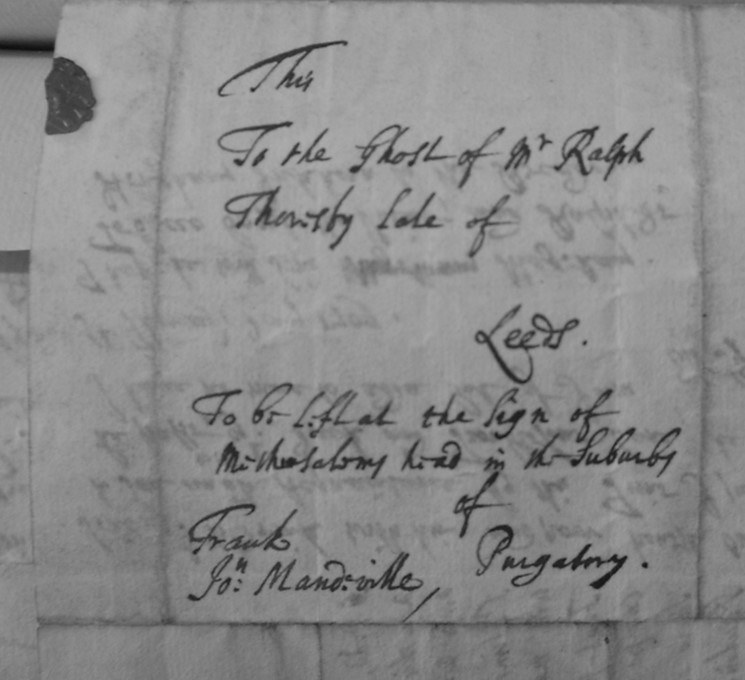 This
To the Ghost of Mr Ralph
Thoresby late of
Leeds.
To be left at the Sign of
Methusalems head in the Suburbs
of
Purgatory.
Frank
Jon: Mandeville,